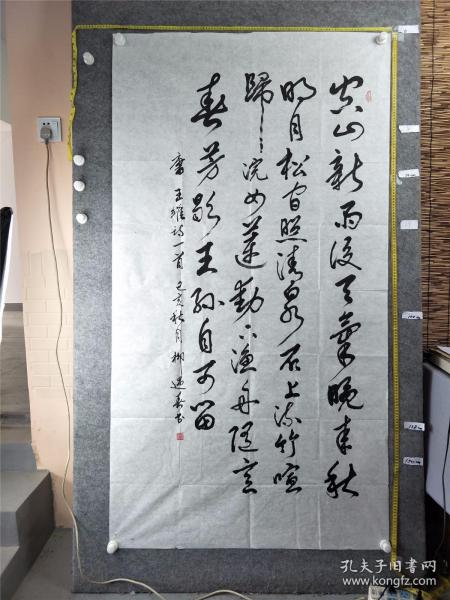 空山新雨後天氣晚来秋
明月松间照清泉石上流竹喧
歸浣女蓮動下漁舟隨意
春芳歇王孫自可留
王維詩一首己亥秋月柳
孔夫子旧书网
www.kongfz.com